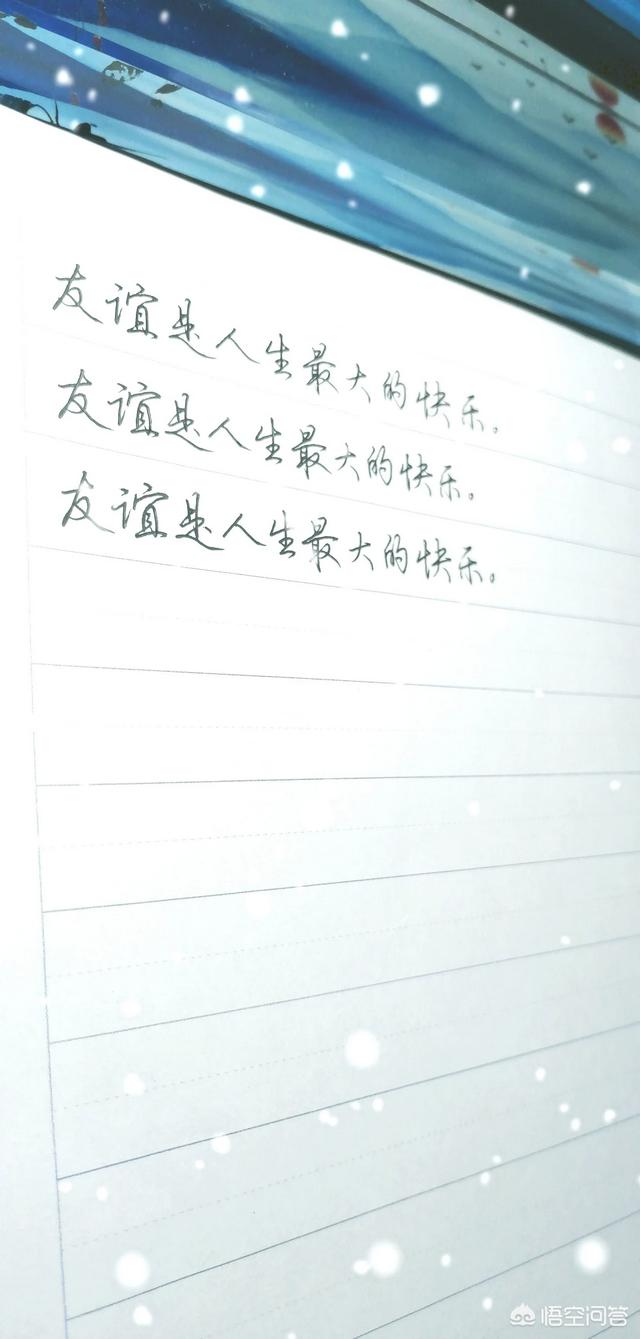 友谊是人生最大的快乐。
友谊是人生最大的快乐。
友谊是人生最大的快乐。
悟空问答